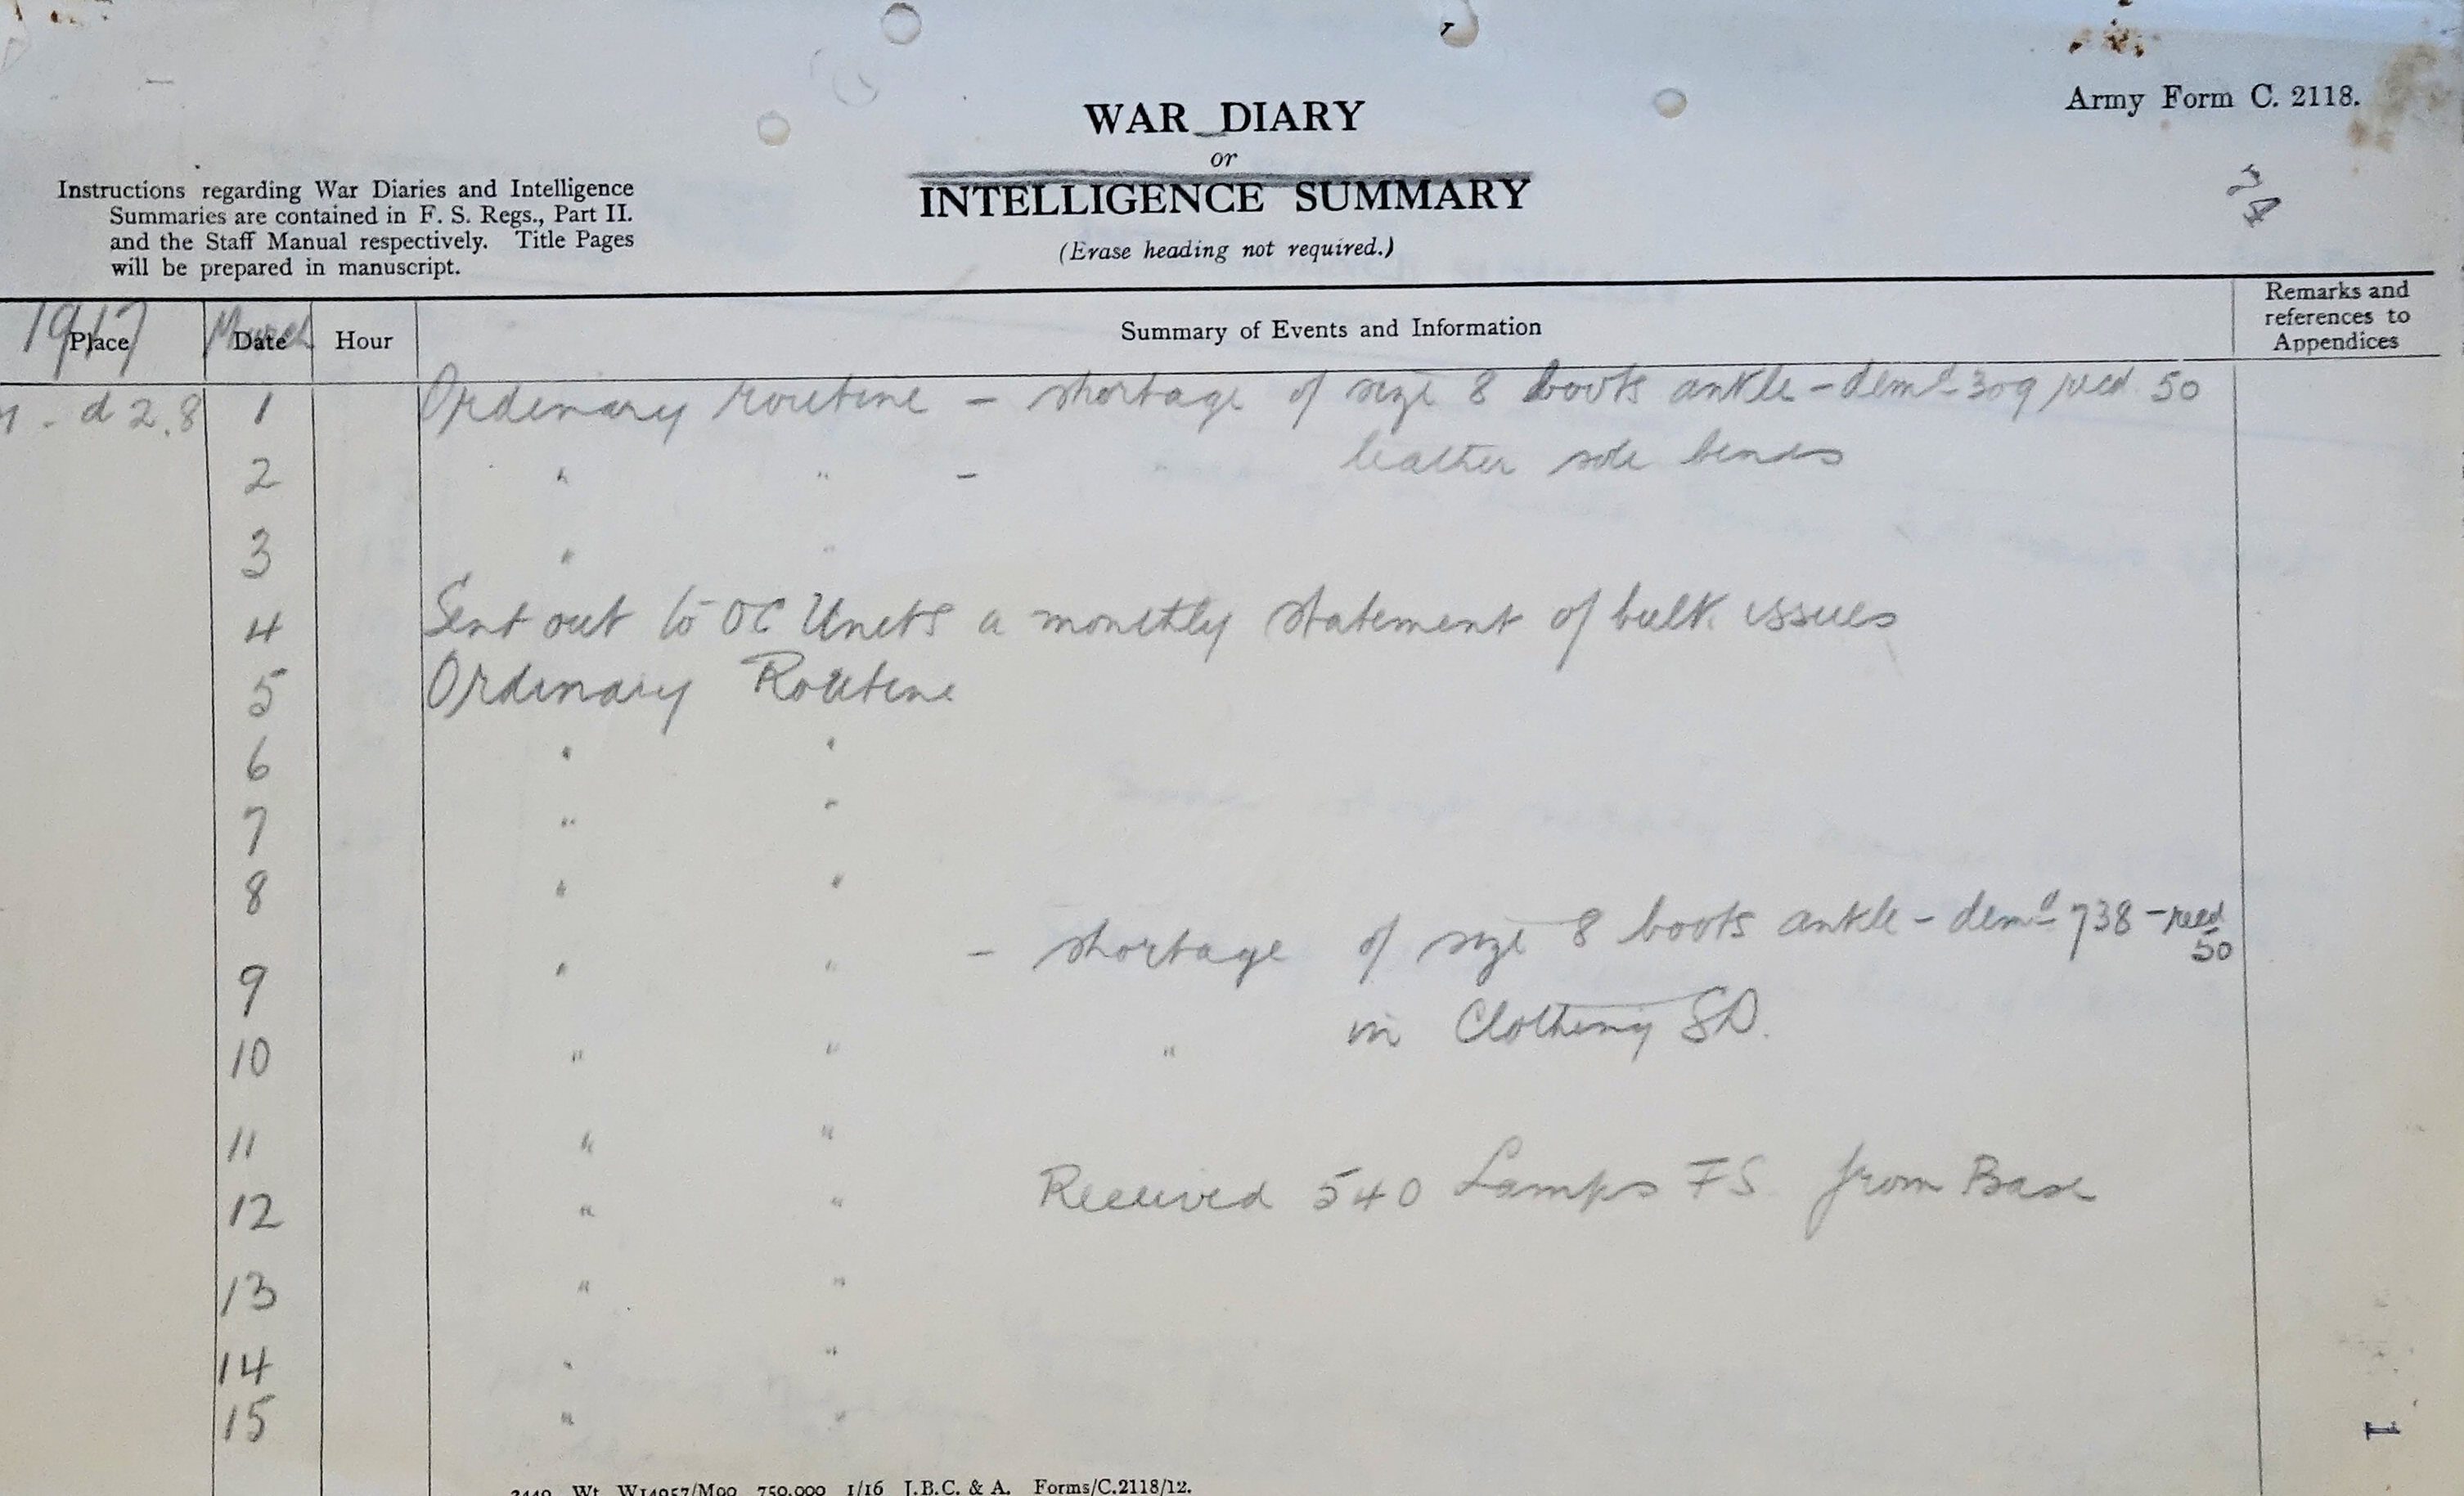 Army Form C. 2118.
WAR DIARY
or
INTELLIGENCE SUMMARY
(Erase heading not required.)
Instructions regarding War Diaries and Intelligence
Summaries are contained in F. S. Regs., Part II.
and the Staff Manual respectively. Title Pages
will be prepared in manuscript.
24
1917 March
Place Date Hour Summary of Events and Information Remarks and
references to
Appendices
d 2.8 1 Ordinary routine - shortage of size 8 boots ankle - demd 309 recd 50
2 " " - " leather sole bends
3 " "
4 Sent out to OC Units a monthly statement of bulk issues
5 Ordinary Routine
6 " "
7 " "
8 " "
9 " " - shortage of size 8 boots ankle - demd 738 - recd
50
10 " " " in Clothing SD.
11 " "
12 " " Received 540 Lamps FS from Base
13 " "
14 " "
15 " "
1
2449 Wt. W14957/M90 750,000 1/16 J.B.C. & A. Forms/C.2118/12.